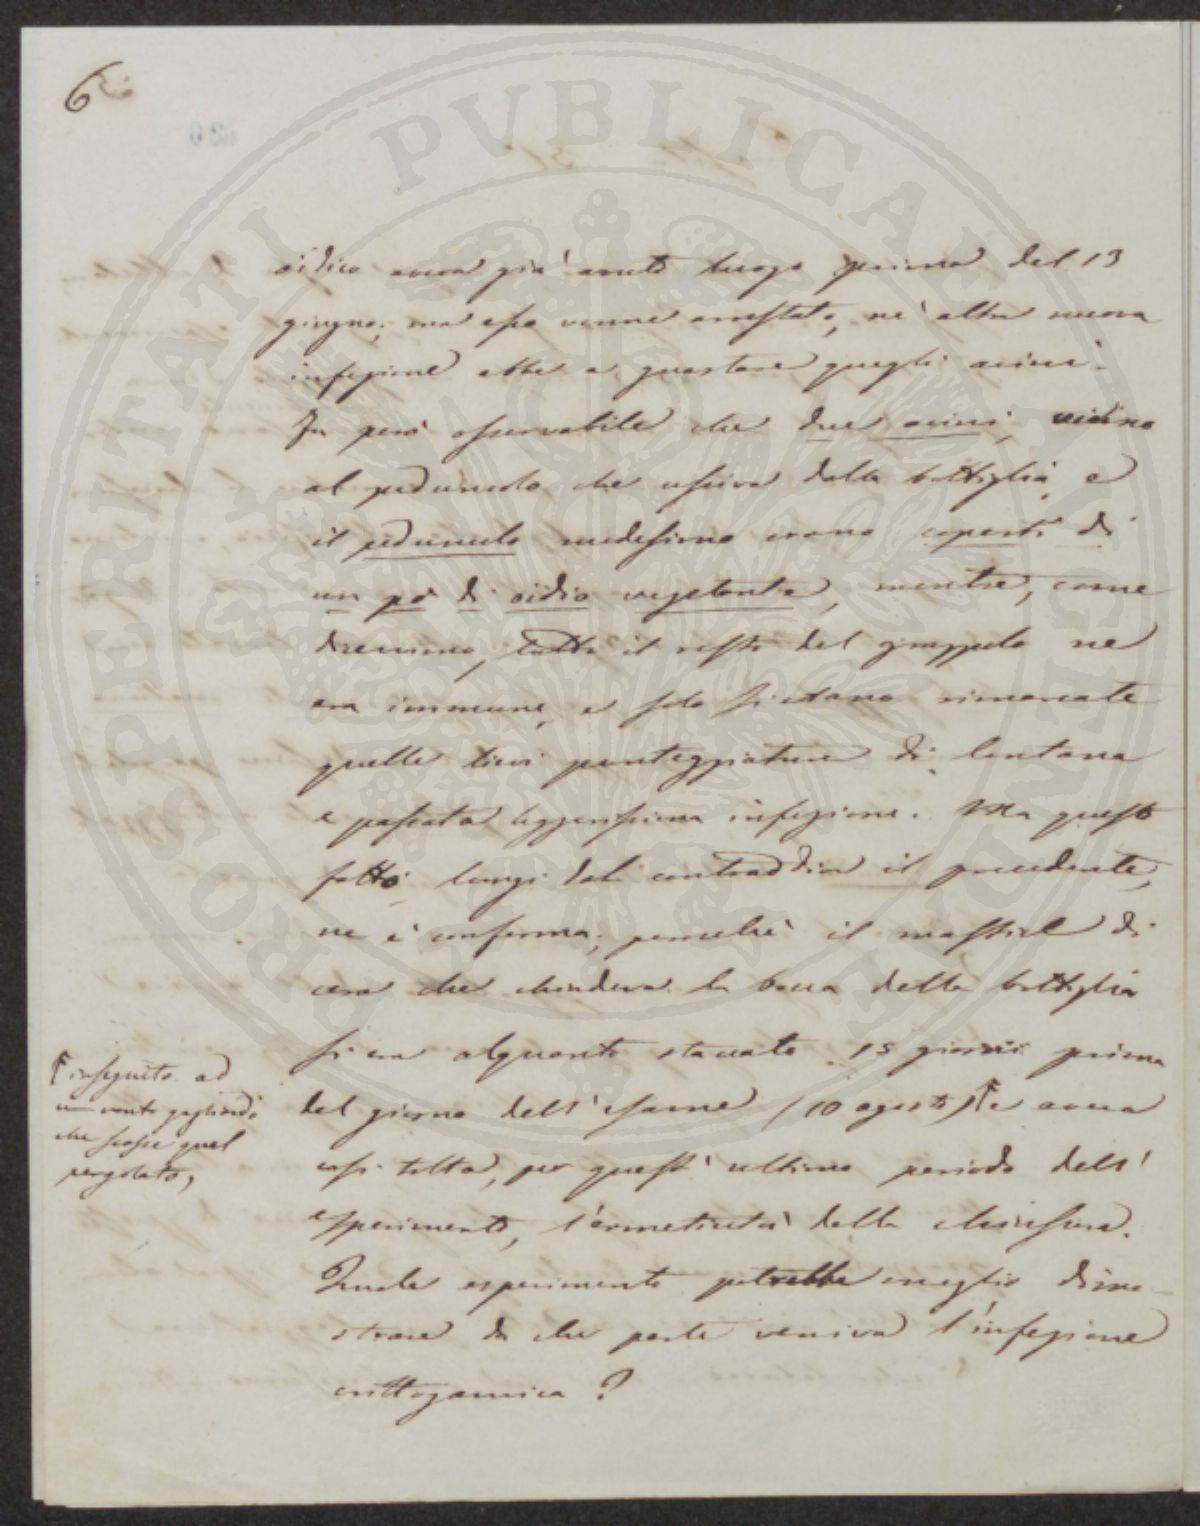 6
oidica aveva già avuto luogo prima del 13
giugno; ma essa venne arrestata, nè altra nuova
infezione ebbe a guastare quegli acini.
Fu però osservabile che due acini, vicino
al peduncolo che usciva dalla bottiglia, e
il peduncolo medesimo erano coperti di
un pò di oidio vegetante, mentre, come
dicemmo, tutto il resto del grappolo ne
era immune, e solo si erano rimarcate
quelle lievi punteggiature di lontana
e passata leggerissima infezione. Ma questo
fatto, lungi dal contraddire il precedente,
ne è conferma; perchè il mastice di
cera che chiudeva la bocca della bottiglia
si era alquanto staccato 15 giorni prima
del giorno dell'esame (10 agosto) e aveva
così tolta, per quest'ultimo periodo dell'
esperimento, l'ermeticità della chiusura.
Quale esperimento potrebbe meglio dimo-
strare da che parte veniva l'infezione
crittogamica?
in seguito ad
un vento gagliardo
che scosse quel
pergolato,
PROSPERITATI PUBLICAE AUGENDAE